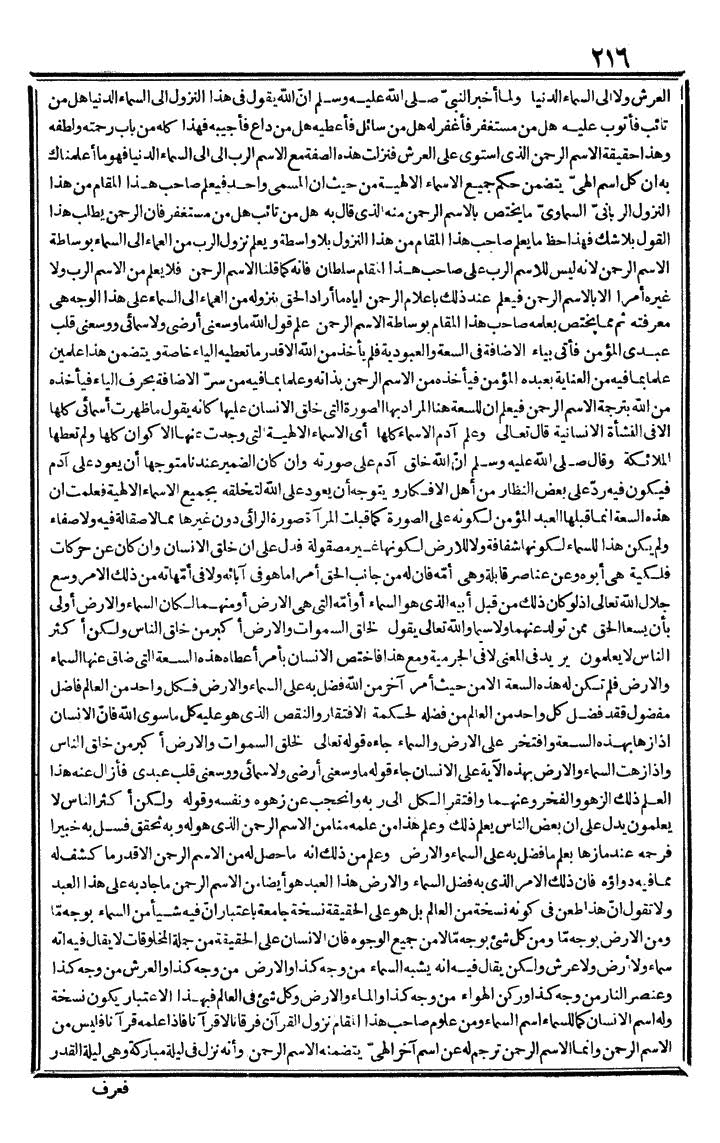 ٢١٦
العرش ولا الى السماء الدنيا ولما أخبر النبيّ صلى الله عليه وسلم انّ الله يقول فى هذا النزول الى السماء الدنيا هل من
تائب فأتوب عليه هل من مستغفر فأغفر له هل من سائل فأعطيه هل من داع فأجيبه فهذا كله من باب رحمته ولطفه
وهذا حقيقة الاسم الرحمن الذى استوى على العرش فنزلت هذه الصفة مع الاسم الرب الى السماء الدنيا فهو ما أعلمناك
به ان كل اسم الهىّ يتضمن حكم جميع الاسماء الالهية من حيث ان المسمى واحد فيعلم صاحب هذا المقام من هذا
النزول الربانىّ السماوىّ ما يختص بالاسم الرحمن منه الذى قال به هل من تائب هل من مستغفر فان الرحمن يطلب هذا
القول بلا شك فهذا حظ ما يعلم صاحب هذا المقام من هذا النزول بلا واسطة و يعلم نزول الرب من العماء الى السماء بوساطة
الاسم الرحمن لانه ليس للاسم الرب على صاحب هذا المقام سلطان فانه كما قلنا الاسم الرحمن فلا يعلم من الاسم الرب ولا
غيره أمرا الا بالاسم الرحمن فيعلم عند ذلك باعلام الرحمن اياه ما أراد الحق بنزوله من العماء الى السماء على هذا الوجه هى
معرفته ثم مما يختص بعلمه صاحب هذا المقام بوساطة الاسم الرحمن علم قول الله ما وسعنى أرضى ولا سمائى ووسعنى قلب
عبدى المؤمن فأتى بياء الاضافة فى السعة والعبودية فلم يأخذ من الله الاقدر ما تعطيه الياء خاصة و يتضمن هذا علمين
علما بما فيه من العناية بعبده المؤمن فيأخذه من الاسم الرحمن بذاته وعلما بما فيه من سرّ الاضافة بحرف الياء فيأخذه
من الله بترجمة الاسم الرحمن فيعلم ان للسعة هنا المراد بها الصورة التى خلق الانسان عليها كأنه يقول ما ظهرت أسمائى كلها
الا فى النشأة الانسانية قال تعالى وعلم آدم الاسماء كلها أى الاسماء الالهية التى وجدت عنها الاكوان كلها ولم تعطها
الملائكة وقال صلى الله عليه وسلم انّ الله خلق آدم على صورته وان كان الضمير عندنا متوجها أن يعود على آدم
فيكون فيه ردّ على بعض النظار من أهل الافكار و يتوجه أن يعود على الله لتخلقه بجميع الاسماء الالهية فعلمت ان
هذه السعة انما قبلها العبد المؤمن لكونه على الصورة كما قبلت المرآة صورة الرائى دون غيرها مما لا صقالة فيه ولا صفاء
ولم يكن هذا للسماء لكونها شفافة ولا للارض لكونها غير مصقولة فدل على ان خلق الانسان وان كان عن حركات
فلكية هى أبوه وعن عناصر قابلة وهى أمّه فان له من جانب الحق أمر اما هو فى آبائه ولا فى أمّهاته من ذلك الامر وسع
جلال الله تعالى اذ لو كان ذلك من قبل أبيه الذى هو السماء أو أمّه التى هى الارض أو منهما لكان السماء والارض أولى
بأن يسعا الحق ممن تولد عنهما ولا سيما والله تعالى يقول لخلق السموات والارض أكبر من خلق الناس ولكن أكثر
الناس لا يعلمون يريد فى المعنى لا فى الجرمية ومع هذا فاختص الانسان بأمر أعطاه هذه السعة التى ضاق عنها السماء
والارض فلم تكن له هذه السعة الا من حيث أمر آخر من الله فضل به على السماء والارض فكل واحد من العالم فاضل
مفضول فقد فضل كل واحد من العالم من فضله لحكمة الافتقار والنقص الذى هو عليه كل ما سوى الله فانّ الانسان
اذا زها بهذه السعة وافتخر على الارض والسماء جاءه قوله تعالى لخلق السموات والارض أكبر من خلق الناس
واذا زهت السماء والارض بهذه الآية على الانسان جاء قوله ما وسعنى أرضى ولا سمائى ووسعنى قلب عبدى فأزال عنه هذا
العلم ذلك الزهو والفخر وعنهما وافتقر الكل الى ربه وانحجب عن زهوه ونفسه وقوله ولكن أكثر الناس لا
يعلمون يدل على ان بعض الناس يعلم ذلك وعلم هذا من علمه منا من الاسم الرحمن الذى هو له و به تحقق فسل به خبيرا
فرحمه عند ما زها بعلم ما فضل به على السماء والارض وعلم من ذلك انه ما حصل له من الاسم الرحمن الا قدر ما كشف له
مما فيه دواؤه فان ذلك الامر الذى به فضل السماء والارض هذا العبد هو أيضا من الاسم الرحمن ما جاد به على هذا العبد
ولا تقول انّ هذا طعن فى كونه نسخة من العالم بل هو على الحقيقة نسخة جامعة باعتبار انّ فيه شيأ من السماء بوجه مّا
ومن الارض بوجه مّا ومن كل شئ بوجه مّا لا من جميع الوجوه فان الانسان على الحقيقة من جملة المخلوقات لا يقال فيه انه
سماء ولا أرض ولا عرش ولكن يقال فيه انه يشبه السماء من وجه كذا والارض من وجه كذا والعرش من وجه كذا
وعنصر النار من وجه كذا وركن الهواء من وجه كذا والماء والارض وكل شئ فى العالم فبهذا الاعتبار يكون نسخة
وله اسم الانسان كما للسماء اسم السماء ومن علوم صاحب هذا المقام نزول القرآن فرقانا لا قرآنا فاذا علمه قرآنا فليس من
الاسم الرحمن وانما الاسم الرحمن ترجم له عن اسم آخر الهىّ يتضمنه الاسم الرحمن وأنه نزل فى ليلة مباركة وهى ليلة القدر
فعرف